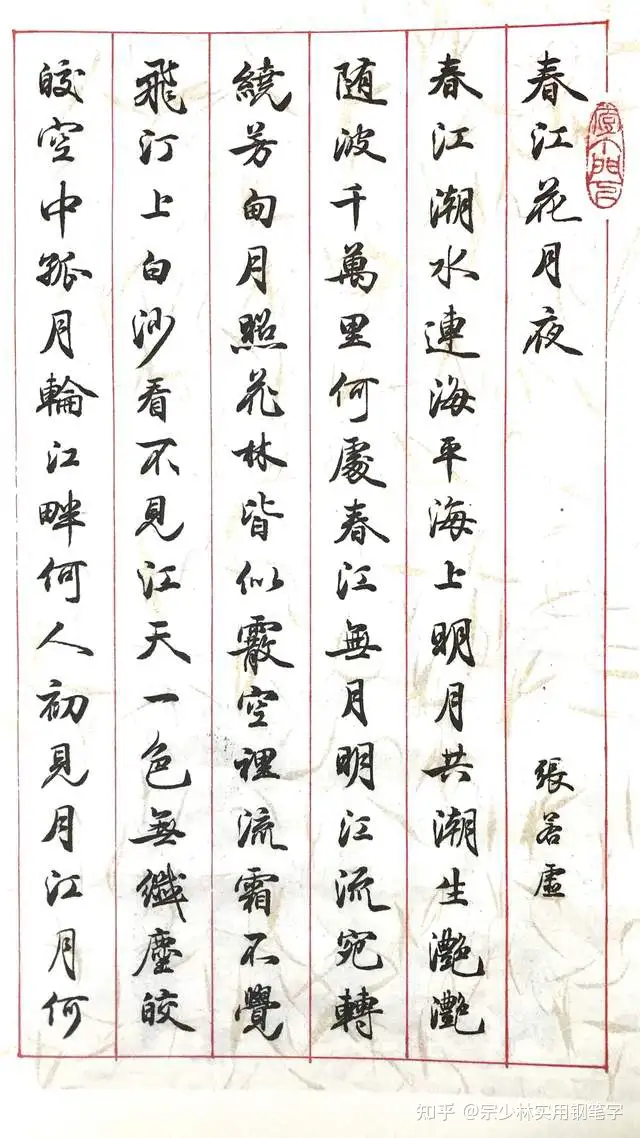 春江花月夜 張若虛
春江潮水連海平海上明月共潮生灔灔
随波千萬里何處春江無月明江流宛轉
繞芳甸月照花林皆似霰空裡流霜不覺
飛汀上白沙看不見江天一色無纖塵皎
皎空中孤月輪江畔何人初見月江月何
知乎 @宗少林实用钢笔字